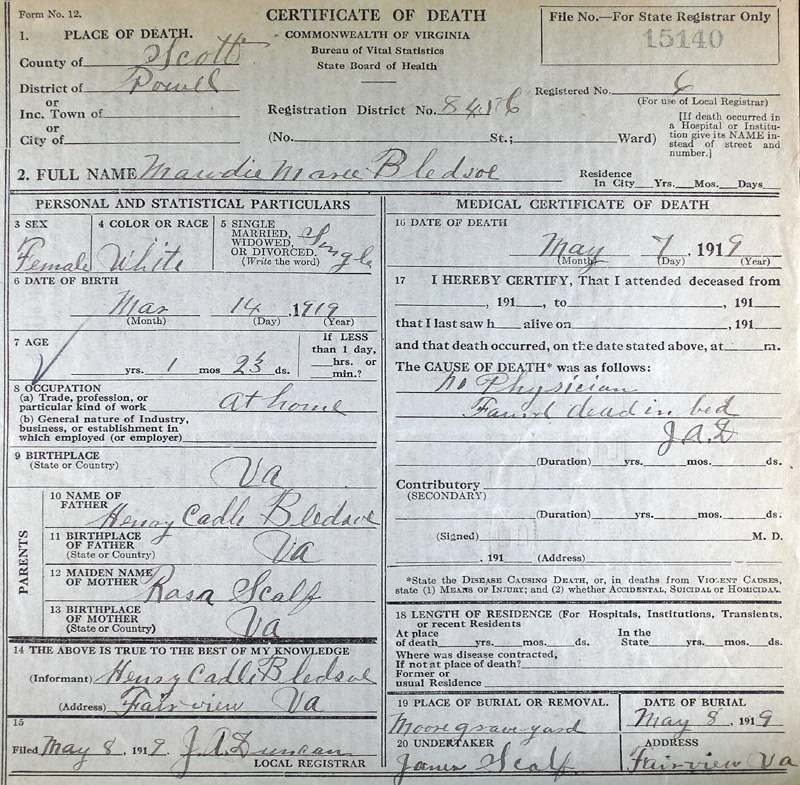 Form No. 12.
CERTIFICATE OF DEATH
COMMONWEALTH OF VIRGINIA
Bureau of Vital Statistics
State Board of Health
File No.—For State Registrar Only
15140
1. PLACE OF DEATH.
County of Scott
District of Powell
or
Inc. Town of
or
City of
Registration District No. 8456
Registered No. 6
(For use of Local Registrar)
(No. St.; Ward)
[If death occurred in
a Hospital or Institu-
tion give its NAME in-
stead of street and
number.]
2. FULL NAME Mawdie Maree Bledsoe
Residence
In City Yrs. Mos. Days
PERSONAL AND STATISTICAL PARTICULARS
3 SEX
Female
4 COLOR OR RACE
White
5 SINGLE
MARRIED,
WIDOWED,
OR DIVORCED.
(Write the word)
Single
6 DATE OF BIRTH
Mar 14, 1919
(Month) (Day) (Year)
7 AGE
yrs. 1 mos 23 ds.
If LESS
than 1 day,
hrs. or
min.?
8 OCCUPATION
(a) Trade, profession, or
particular kind of work at home
(b) General nature of Industry,
business, or establishment in
which employed (or employer)
9 BIRTHPLACE
(State or Country)
Va
PARENTS
10 NAME OF
FATHER
Henry Cadle Bledsoe
11 BIRTHPLACE
OF FATHER
(State or Country)
Va
12 MAIDEN NAME
OF MOTHER
Rosa Scalf
13 BIRTHPLACE
OF MOTHER
(State or Country)
Va
14 THE ABOVE IS TRUE TO THE BEST OF MY KNOWLEDGE
(Informant) Henry Cadle Bledsoe
(Address) Fairview Va
15
Filed May 8, 1919. J. A. Duncan
LOCAL REGISTRAR
MEDICAL CERTIFICATE OF DEATH
16 DATE OF DEATH
May 7, 1919
(Month) (Day) (Year)
17 I HEREBY CERTIFY, That I attended deceased from
, 191 , to , 191
that I last saw h alive on , 191
and that death occurred, on the date stated above, at m.
The CAUSE OF DEATH* was as follows:
No Physician
Found dead in bed
J.A.D
(Duration) yrs. mos. ds.
Contributory
(SECONDARY)
(Duration) yrs. mos. ds.
(Signed) M. D.
, 191 (Address)
*State the DISEASE CAUSING DEATH, or, in deaths from VIOLENT CAUSES,
state (1) MEANS OF INJURY; and (2) whether ACCIDENTAL, SUICIDAL or HOMICIDAL.
18 LENGTH OF RESIDENCE (For Hospitals, Institutions, Transients,
or recent Residents
At place
of death yrs. mos. ds.
In the
State yrs. mos. ds.
Where was disease contracted,
If not at place of death?
Former or
usual Residence
19 PLACE OF BURIAL OR REMOVAL.
Moore graveyard
DATE OF BURIAL
May 8, 1919
20 UNDERTAKER
James Scalf
ADDRESS
Fairview Va